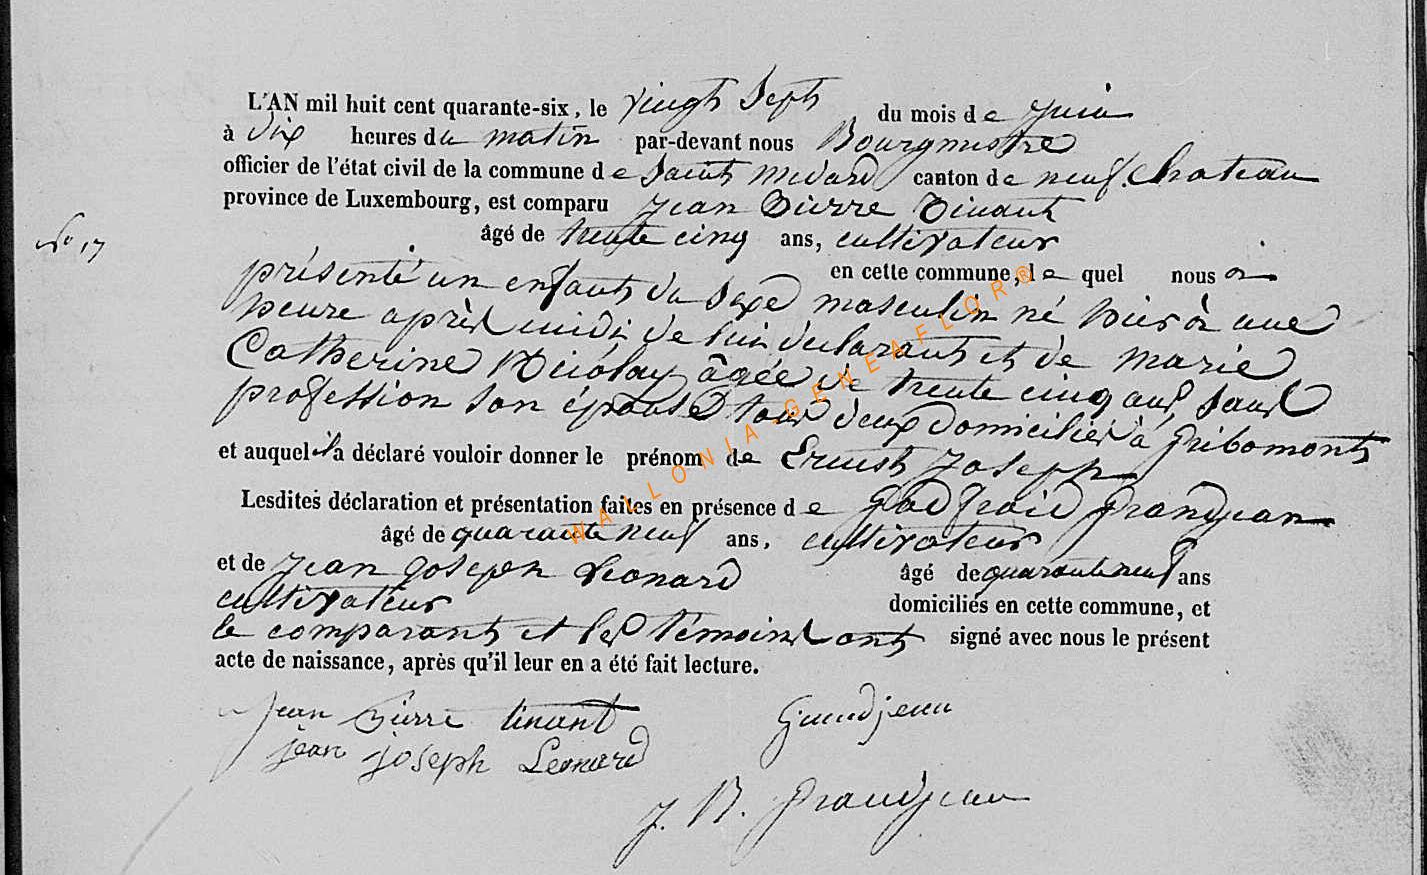 L'AN mil huit cent quarante-six, le vingt Sept du mois de juin
à dix heures du matin par-devant nous Bourgmestre
officier de l'état civil de la commune de Saint medard canton de neuf-Chateau
province de Luxembourg, est comparu jean Pierre Tinant
No 17
âgé de trente cinq ans, cultivateur
en cette commune, le quel nous a
présenté un enfant du Sexe masculin né hier à une
heure après midi de lui déclarant et de marie
Catherine Nicolay âgée de trente cinq ans, Sans
profession Son épouse tous deux domiciliés à gribomont
et auquel il a déclaré vouloir donner le prénom de Ernest joseph
Lesdites déclaration et présentation faites en présence de godfroid grandjean
âgé de quarante neuf ans, cultivateur
et de jean joseph Leonard âgé de quarante neuf ans
cultivateur domiciliés en cette commune, et
le comparant et les témoins ont signé avec nous le présent
acte de naissance, après qu'il leur en a été fait lecture.
jean Pierre tinant Grandjean
jean joseph Leonard
J. N. grandjean
WALLONIA-GENEAFLOR®